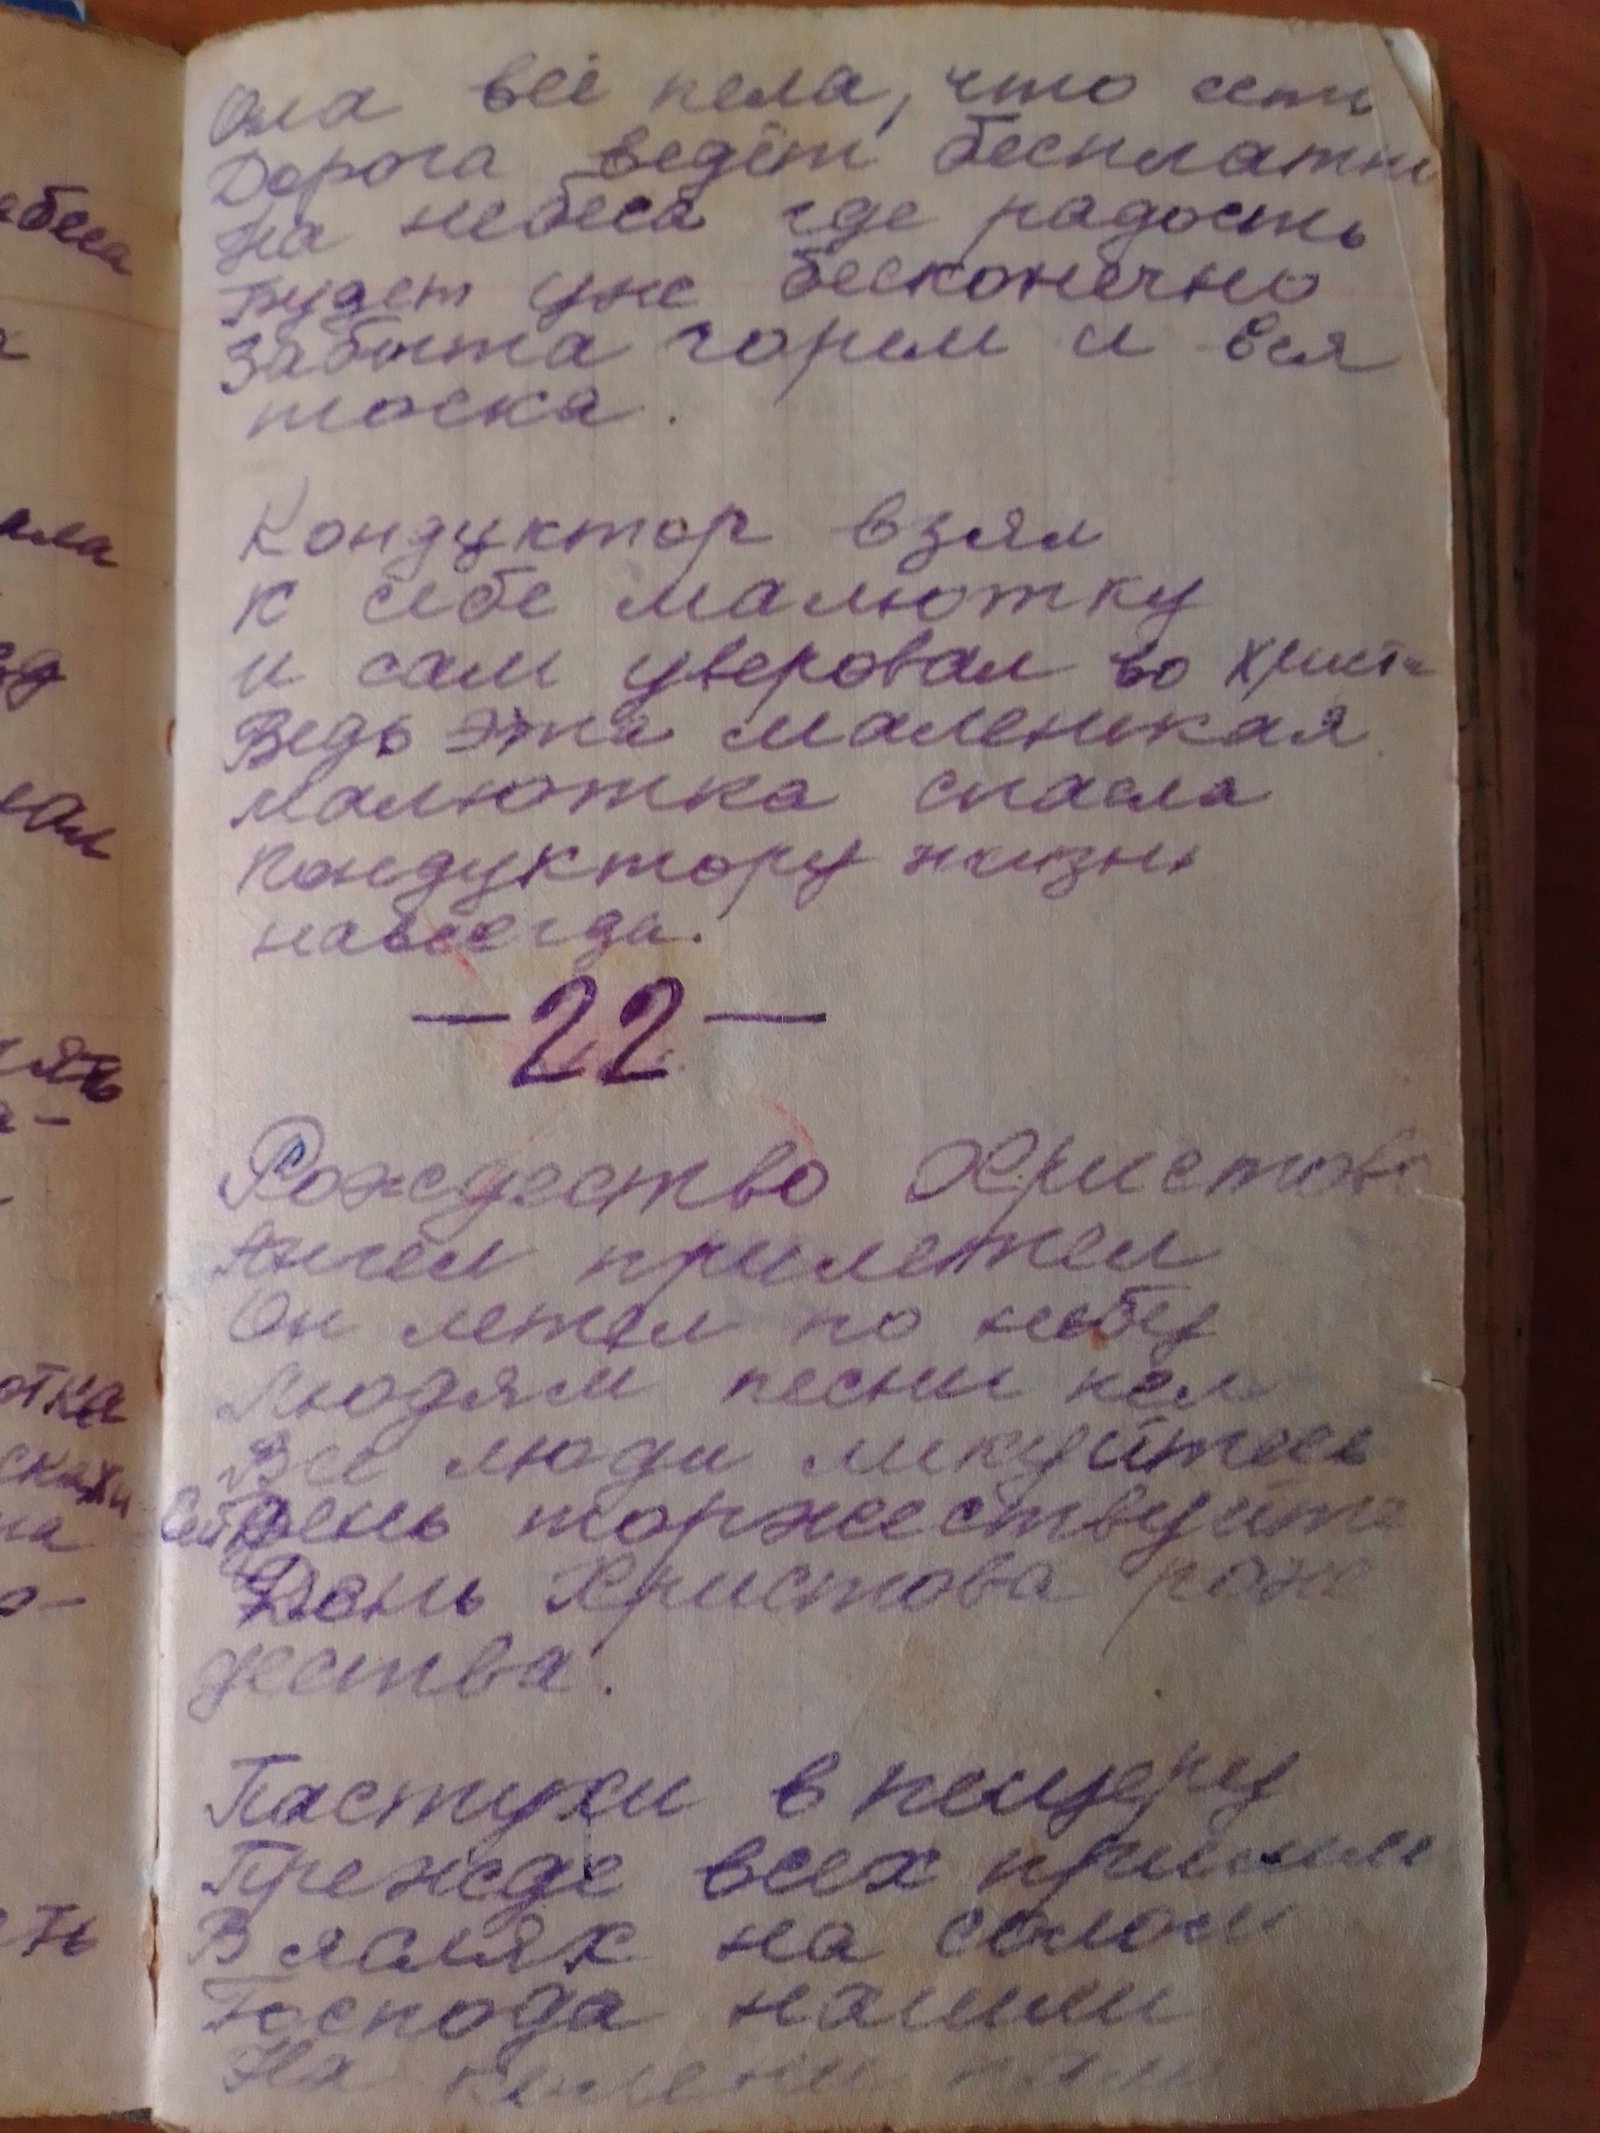 Она всё пела, что есть
Дорога ведёт бесплатно
На небеса где радость
Будет уже бесконечно
Забыта горем и вся
тоска.
Кондуктор взял
к себе малютку
и сам уверовал во Христа
Ведь эта маленкая
малютка спасла
Кондуктору жизнь
навсегда.
—22—
Рождество Христово
Ангел прилетел
Он летел по небу
Людям песни пел
Все люди ликуйтесь
Сей день торжествуйте
День Христова рож
дества.
Пастухи в пещеру
Прежде всех пришли
В яслях на соломе
Господа нашли
На колени пали